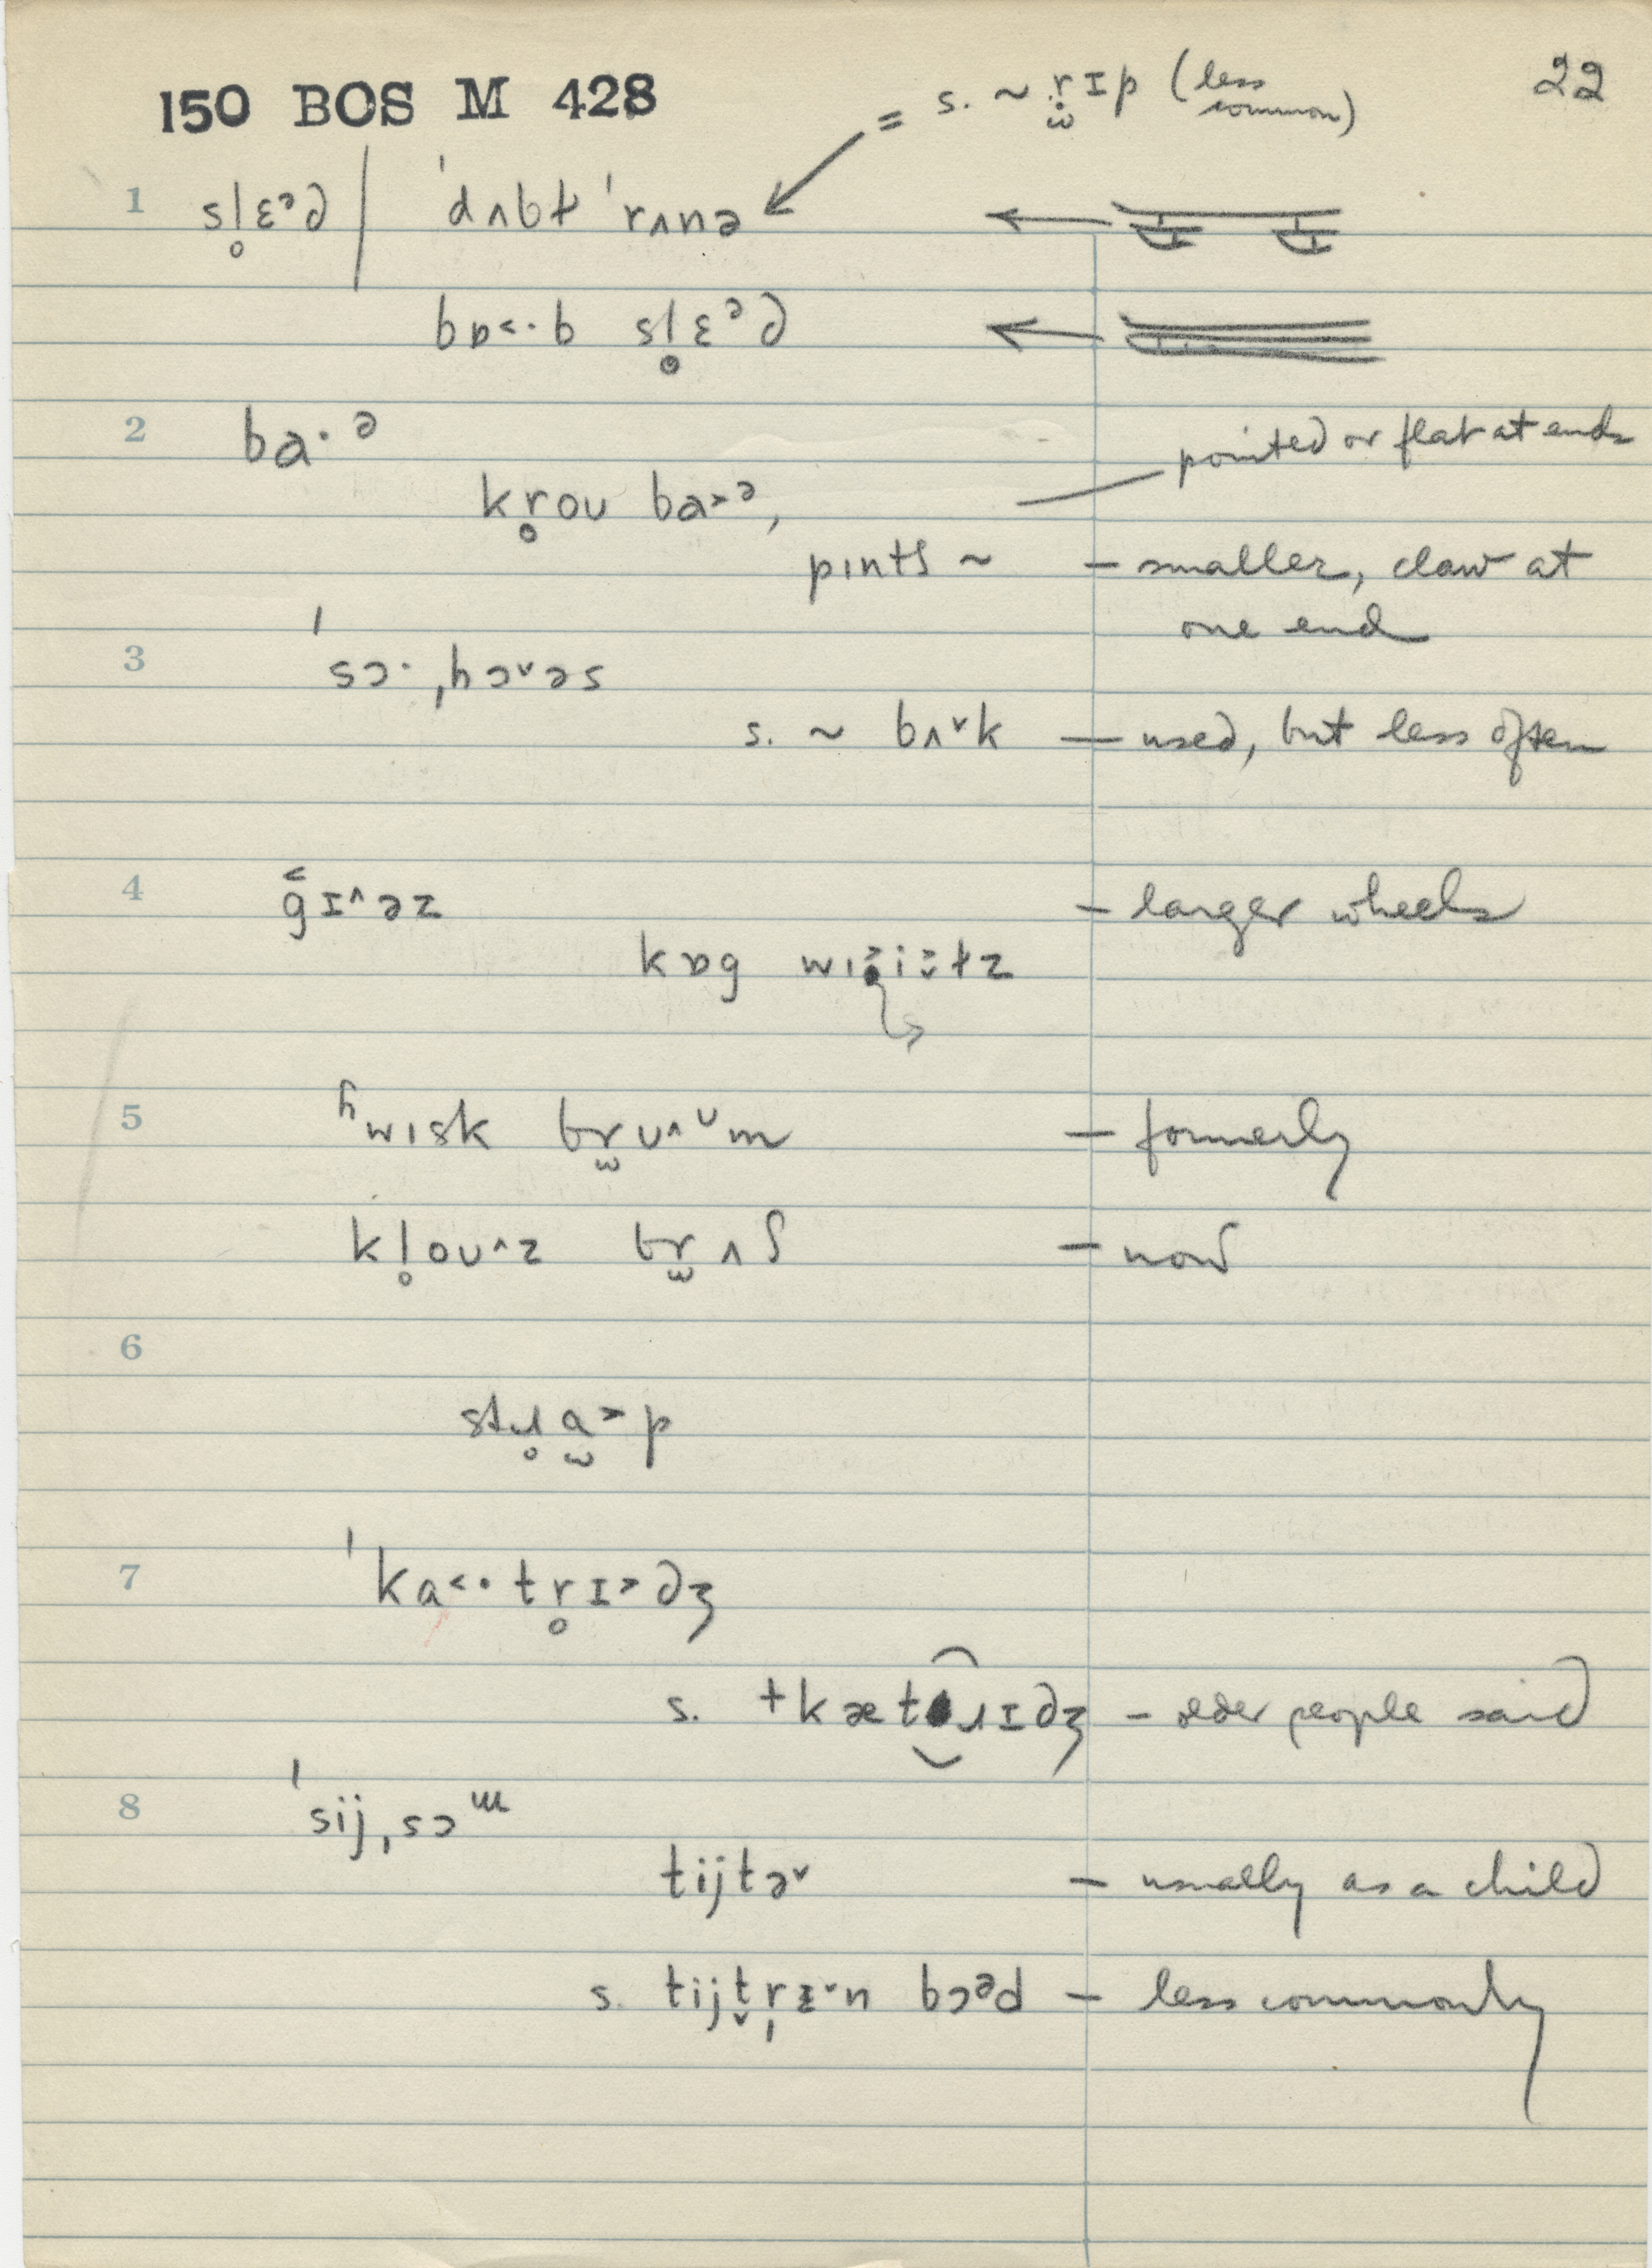 150 BOS M 428
22
= s. ~ r̥̫ɪp (less common)
1 sl̥ɛᵊd ˈdʌbɫ ˈrʌnə
bɒ˂·b sl̥ɛᵊd
2 ba·ᵊ
pointed or flat at ends
kr̥oʊ ba˃ᵊ,
pɪntʃ ~ – smaller, claw at
one end
3 ˈsɔ·ˌhɔ˅əs
s. ~ bʌ˅k – used, but less often
4 g̑ɪ˄əz – larger wheels
kɒg
5 ʱwɪsk br̫ʊ˄ᶷm – formerly
kl̥oʊ˄z br̫ʌʃ – now
6
stɹ̥a̫˃p
7 ˈka˂·tr̥ɪ˃dʒ
s. †kætɹɪdʒ – older people said
8 ˈsijˌsɔᵚ
tijtə˅ – usually as a child
s. bɔᵊd – less commonly